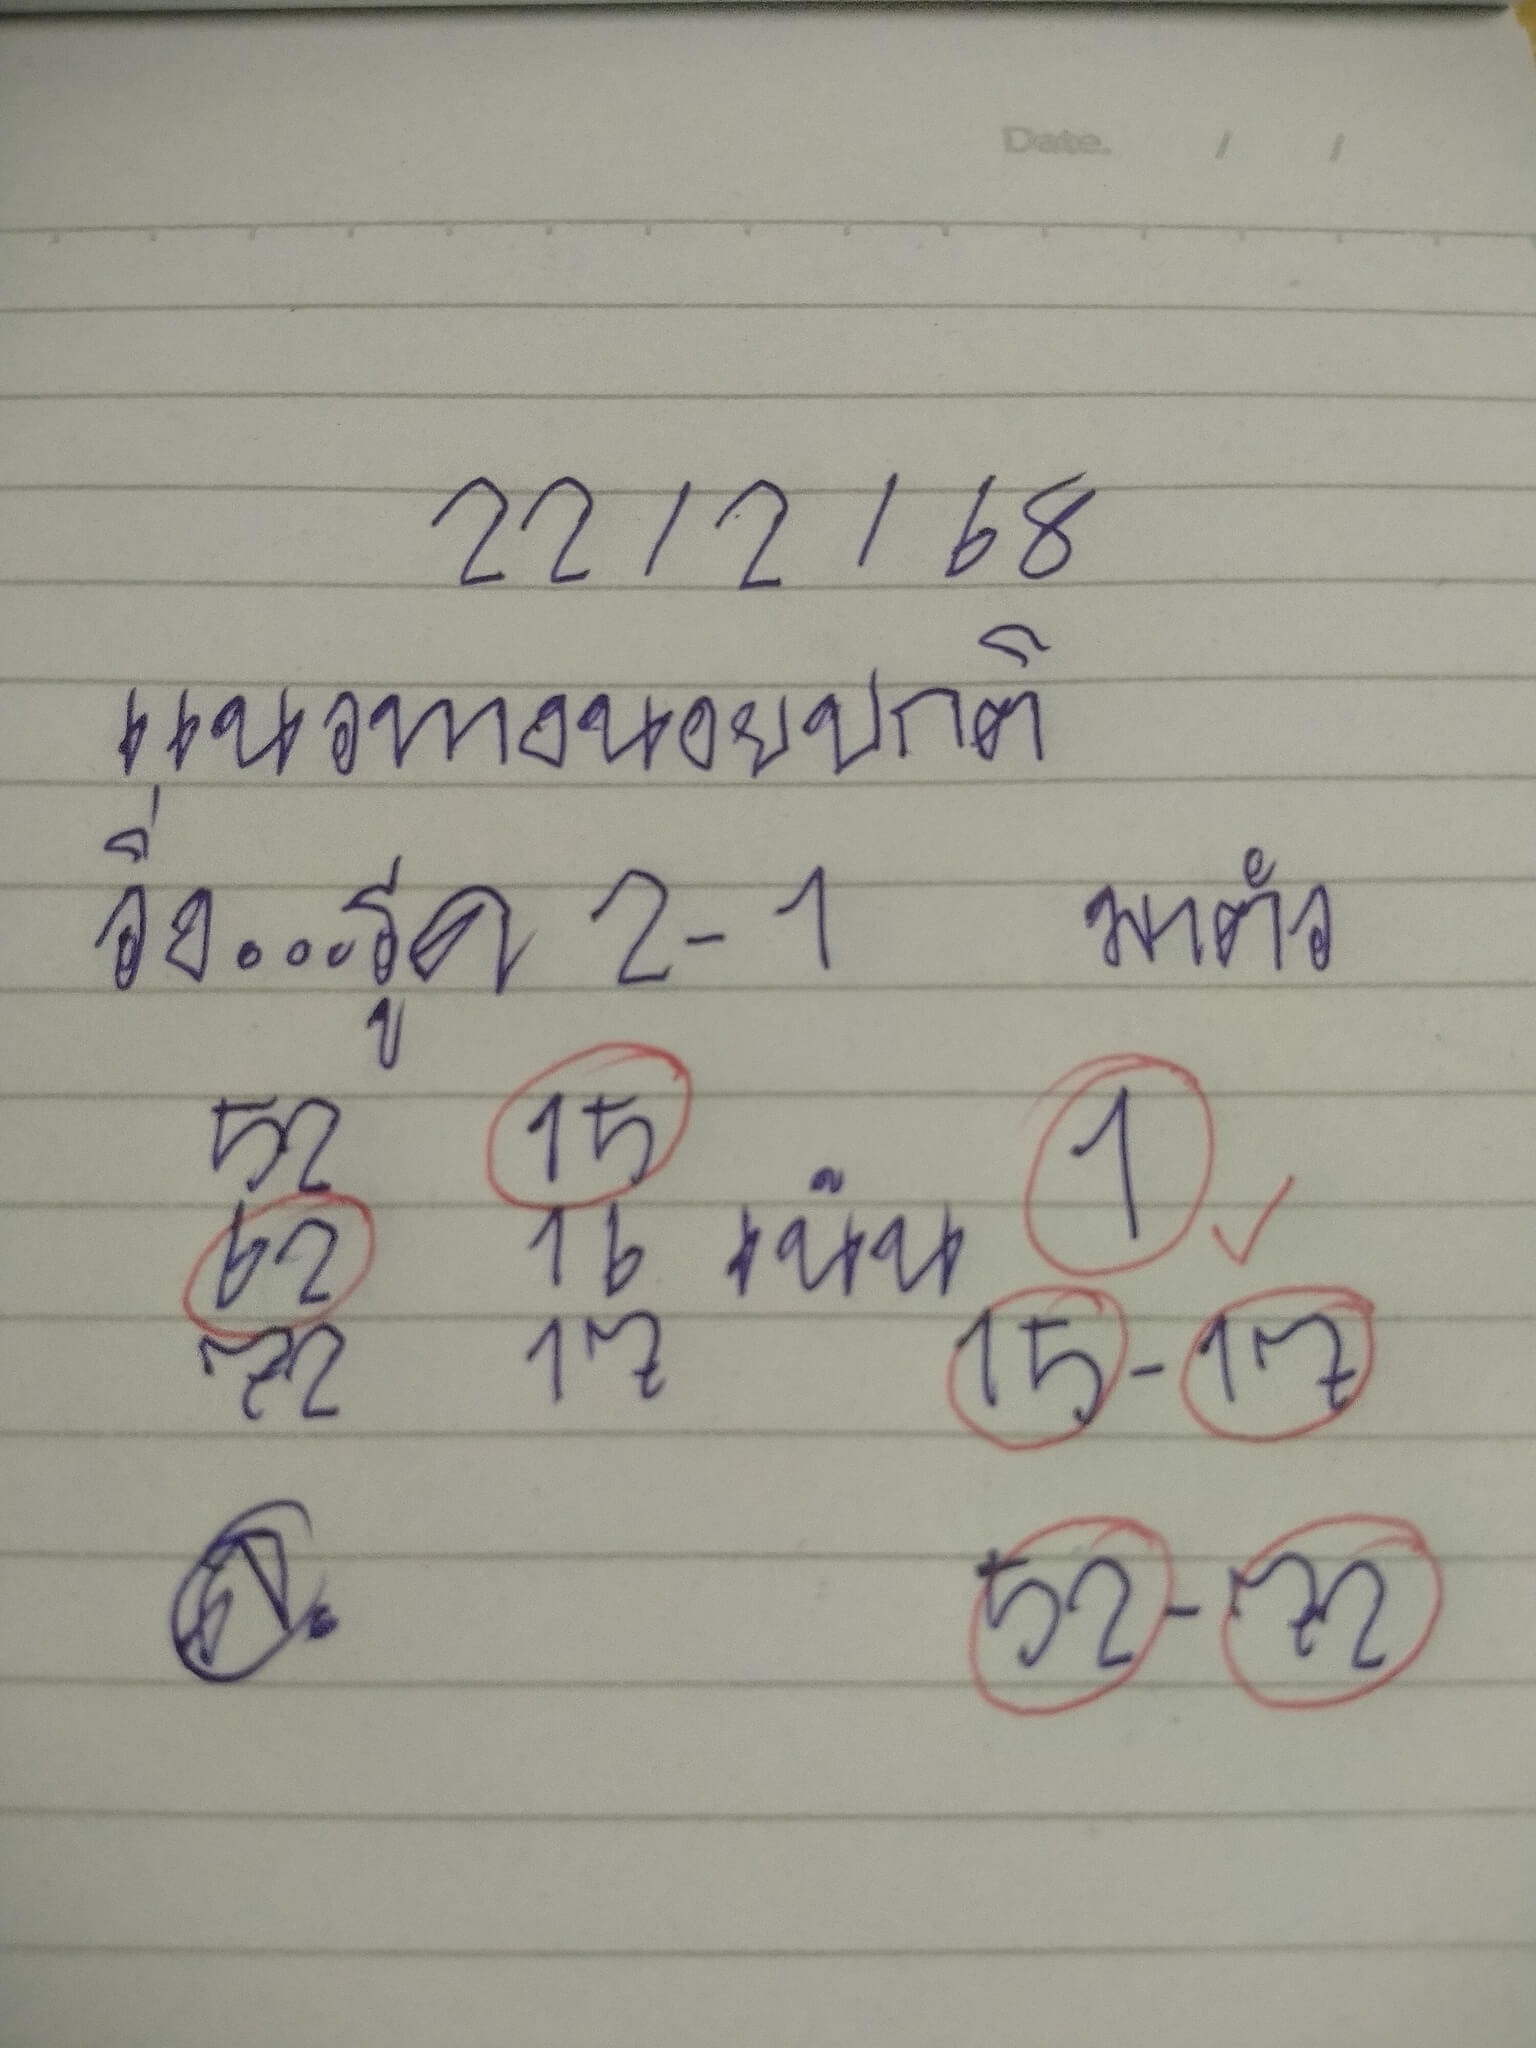 Date. / /
22 / 2 / 68
แนวทางนอยปกติ
วิ่ง...รูด 2-1 มาตัว
52 15 1
62 16 เน้น
72 17 15-17
52-72